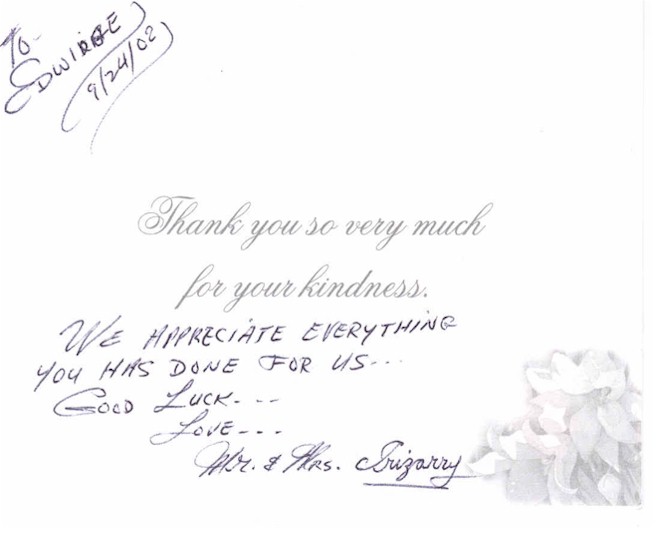 To-
EDWIRGE
9/24/02
Thank you so very much
for your kindness.
WE APPRECIATE EVERYTHING
YOU HAS DONE FOR US...
GOOD LUCK...
LOVE---
Mr. & Mrs. Irizarry